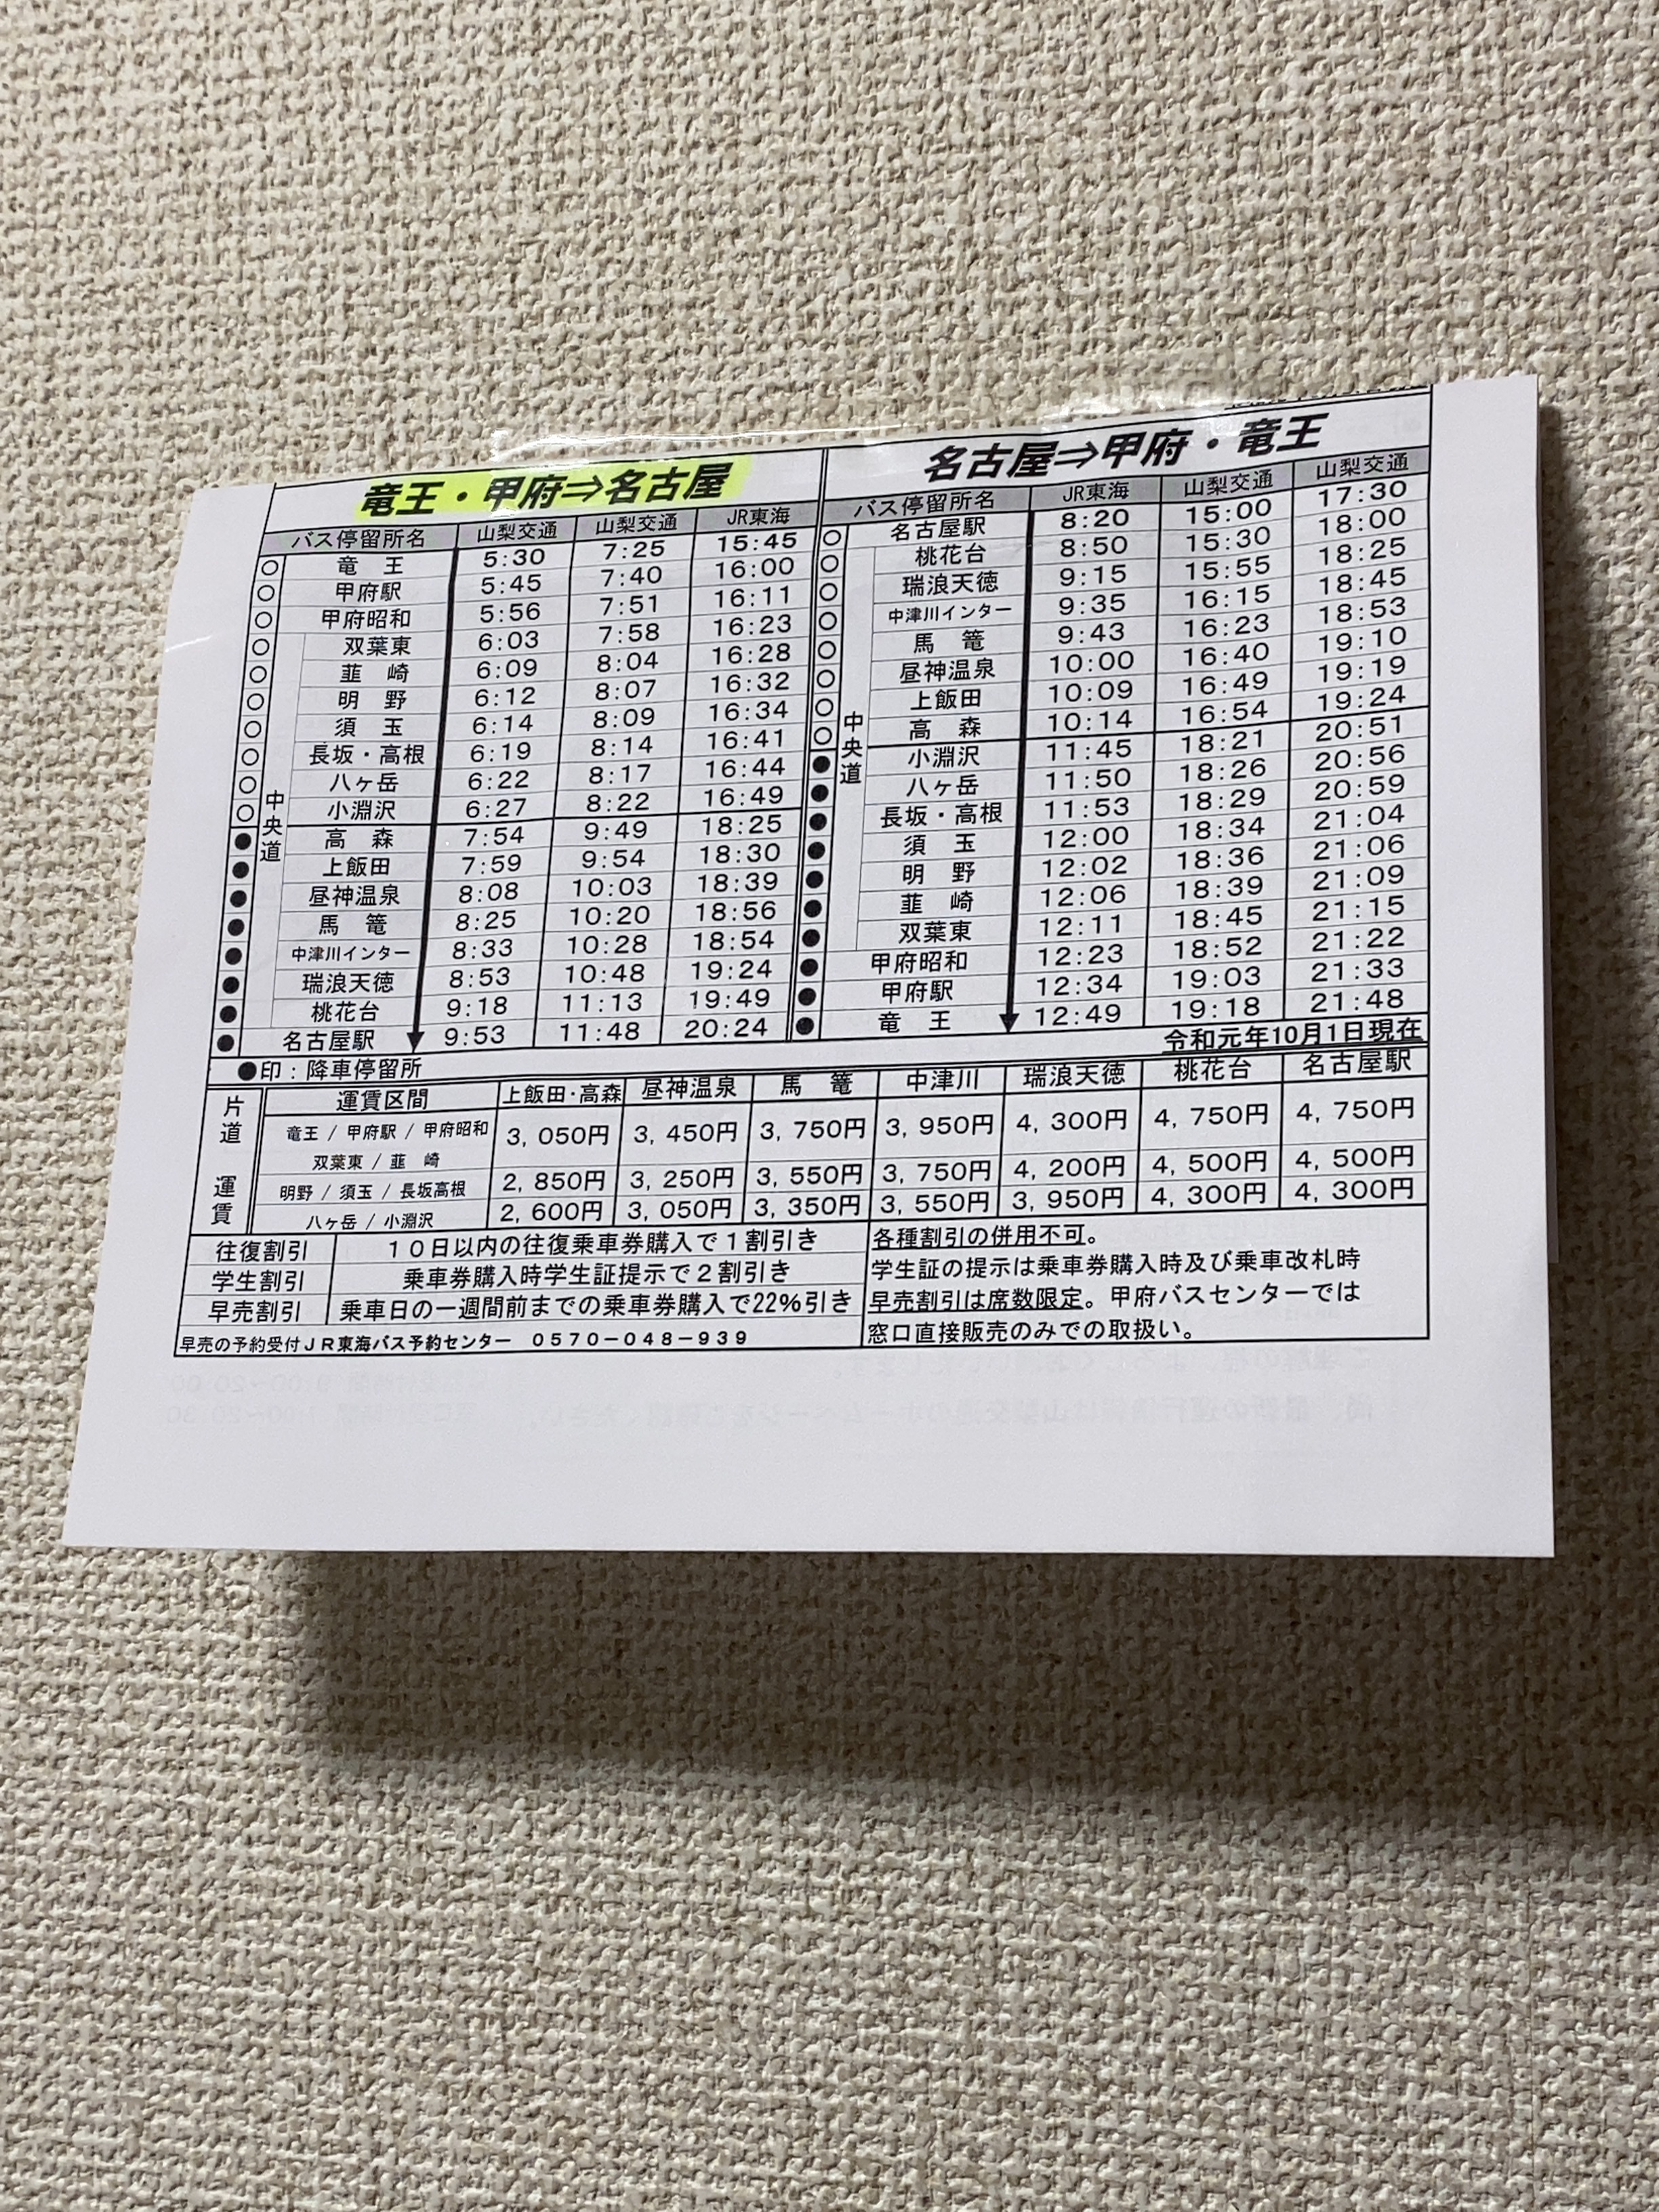 竜王・甲府⇒名古屋
バス停留所名 山梨交通 山梨交通 JR東海
○ 竜 王 5:30 7:25 15:45
○ 甲府駅 5:45 7:40 16:00
○ 甲府昭和 5:56 7:51 16:11
○ 双葉東 6:03 7:58 16:23
○ 韮 崎 6:09 8:04 16:28
○ 明 野 6:12 8:07 16:32
○ 須 玉 6:14 8:09 16:34
○ 長坂・高根 6:19 8:14 16:41
○ 八ヶ岳 6:22 8:17 16:44
○ 小淵沢 6:27 8:22 16:49
● 高 森 7:54 9:49 18:25
● 上飯田 7:59 9:54 18:30
● 昼神温泉 8:08 10:03 18:39
● 馬 篭 8:25 10:20 18:56
● 中津川インター 8:33 10:28 18:54
● 瑞浪天徳 8:53 10:48 19:24
● 桃花台 9:18 11:13 19:49
● 名古屋駅 9:53 11:48 20:24
中央道
●印：降車停留所
名古屋⇒甲府・竜王
バス停留所名 JR東海 山梨交通 山梨交通
○ 名古屋駅 8:20 15:00 17:30
○ 桃花台 8:50 15:30 18:00
○ 瑞浪天徳 9:15 15:55 18:25
○ 中津川インター 9:35 16:15 18:45
○ 馬 篭 9:43 16:23 18:53
○ 昼神温泉 10:00 16:40 19:10
○ 上飯田 10:09 16:49 19:19
○ 高 森 10:14 16:54 19:24
● 小淵沢 11:45 18:21 20:51
● 八ヶ岳 11:50 18:26 20:56
● 長坂・高根 11:53 18:29 20:59
● 須 玉 12:00 18:34 21:04
● 明 野 12:02 18:36 21:06
● 韮 崎 12:06 18:39 21:09
● 双葉東 12:11 18:45 21:15
● 甲府昭和 12:23 18:52 21:22
● 甲府駅 12:34 19:03 21:33
● 竜 王 12:49 19:18 21:48
中央道
令和元年10月1日現在
片道 運賃
運賃区間 上飯田・高森 昼神温泉 馬 篭 中津川 瑞浪天徳 桃花台 名古屋駅
竜王 / 甲府駅 / 甲府昭和
双葉東 / 韮 崎 3,050円 3,450円 3,750円 3,950円 4,300円 4,750円 4,750円
明野 / 須玉 / 長坂高根 2,850円 3,250円 3,550円 3,750円 4,200円 4,500円 4,500円
八ヶ岳 / 小淵沢 2,600円 3,050円 3,350円 3,550円 3,950円 4,300円 4,300円
往復割引 10日以内の往復乗車券購入で1割引き
学生割引 乗車券購入時学生証提示で2割引き
早売割引 乗車日の一週間前までの乗車券購入で22%引き
早売の予約受付JR東海バス予約センター 0570-048-939
各種割引の併用不可。
学生証の提示は乗車券購入時及び乗車改札時
早売割引は席数限定。甲府バスセンターでは
窓口直接販売のみでの取扱い。